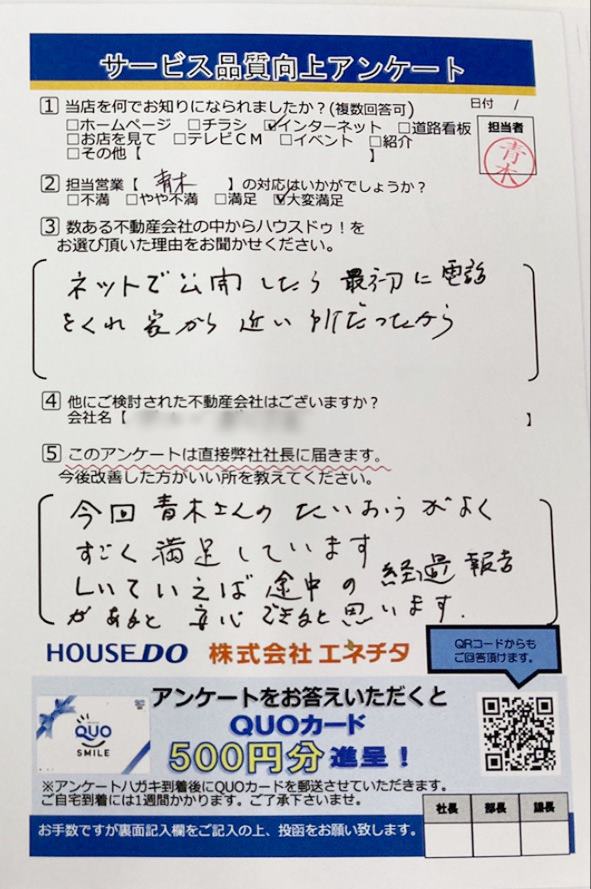 サービス品質向上アンケート
1 当店を何でお知りになられましたか?(複数回答可)
日付 /
□ホームページ □チラシ ☑インターネット □道路看板
□お店を見て □テレビCM □イベント □紹介
□その他【 】
担当者
青木
2 担当営業【 青木 】の対応はいかがでしょうか?
□不満 □やや不満 □満足 ☑大変満足
3 数ある不動産会社の中からハウスドゥ!を
お選び頂いた理由をお聞かせください。
ネットで公開したら最初に電話
をくれ家から近い所だったから
4 他にご検討された不動産会社はございますか?
会社名【 】
5 このアンケートは直接弊社社長に届きます。
今後改善した方がいい所を教えてください。
今回青木さんのたいおうがよく
すごく満足しています
しいていえば途中の経過報告
があると安心できると思います.
HOUSEDO 株式会社エネチタ
QRコードからも
ご回答頂けます。
アンケートをお答えいただくと
QUOカード
500円分進呈!
QUO
SMILE
※アンケートハガキ到着後にQUOカードを郵送させていただきます。
ご自宅到着には1週間かかります。ご了承下さいませ。
社長 部長 課長
お手数ですが裏面記入欄をご記入の上、投函をお願い致します。